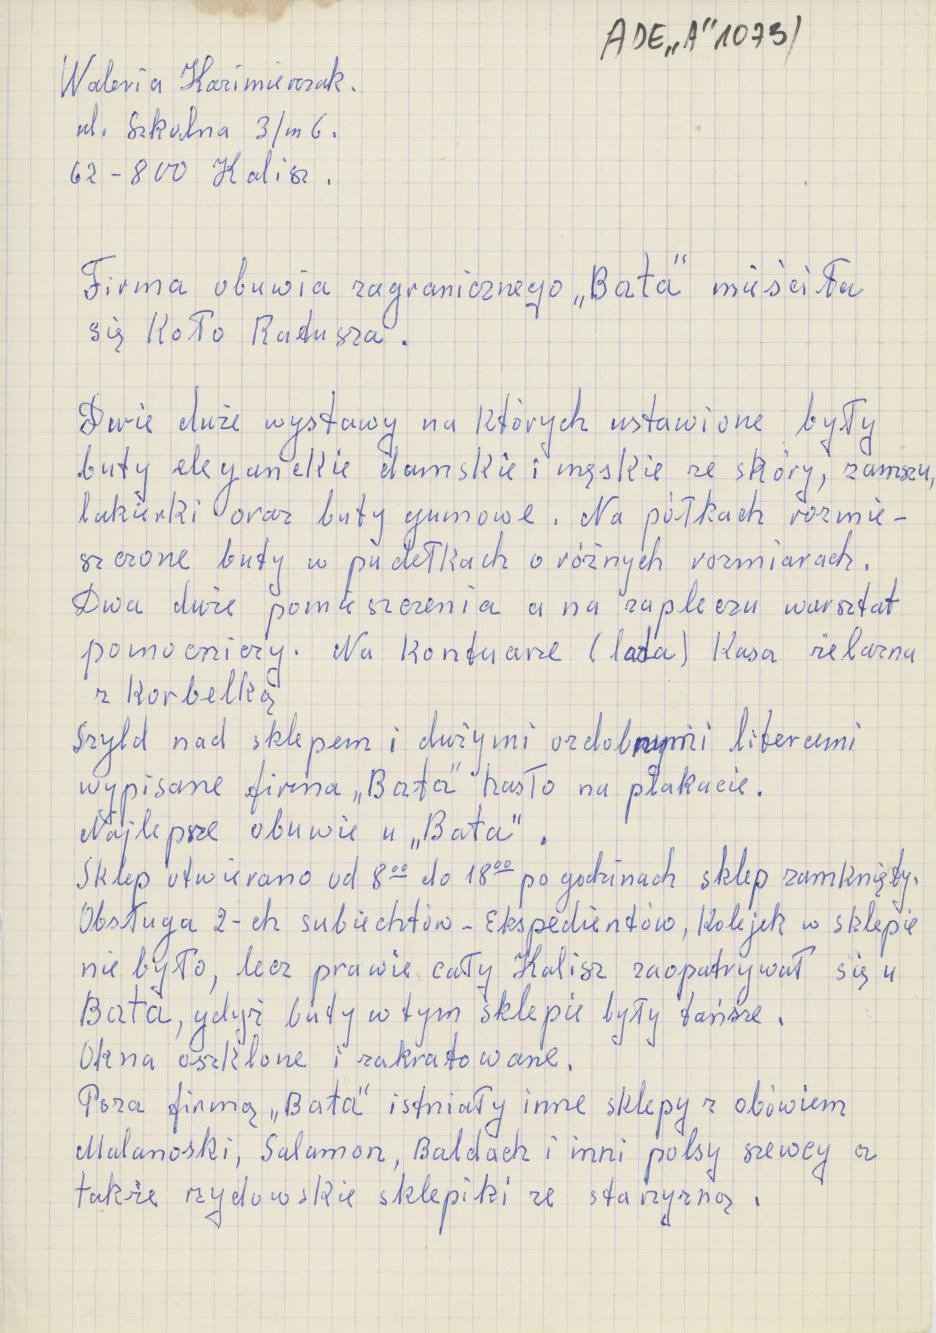 ADE„A"1073/
Waleria Kazimierczak.
ul. Szkolna 3/m 6.
62-800 Kalisz.
Firma obuwia zagranicznego „Bata" mieściła
się Koło Ratusza.
Dwie duże wystawy na których ustawione były
buty eleganckie damskie i męskie ze skóry, zamszu,
lakierki oraz buty gumowe. Na półkach rozmie-
szczone buty w pudełkach o różnych rozmiarach.
Dwa duże pomieszczenia a na zapleczu warsztat
pomocniczy. Na Kontuarze (lada) Kasa żelazna
z Korbelką
Szyld nad sklepem i dużymi ozdobnymi literami
wypisane firma „Bata" hasło na plakacie.
Najlepsze obuwie u „Bata".
Sklep otwierano od 8⁰⁰ do 18⁰⁰ po godzinach sklep zamknięty.
Obsługa 2-ch subiechtów - Ekspedientów, Kolejek w sklepie
nie było, lecz prawie cały Kalisz zaopatrywał się u
Bata, gdyż buty w tym sklepie były tańsze.
Okna oszklone i zakratowane.
Poza firmą „Bata" istniały inne sklepy z obówiem
Malanoski, Salamon, Baldach i inni polsy szewcy a
także rzydowskie sklepiki ze starzyzną.